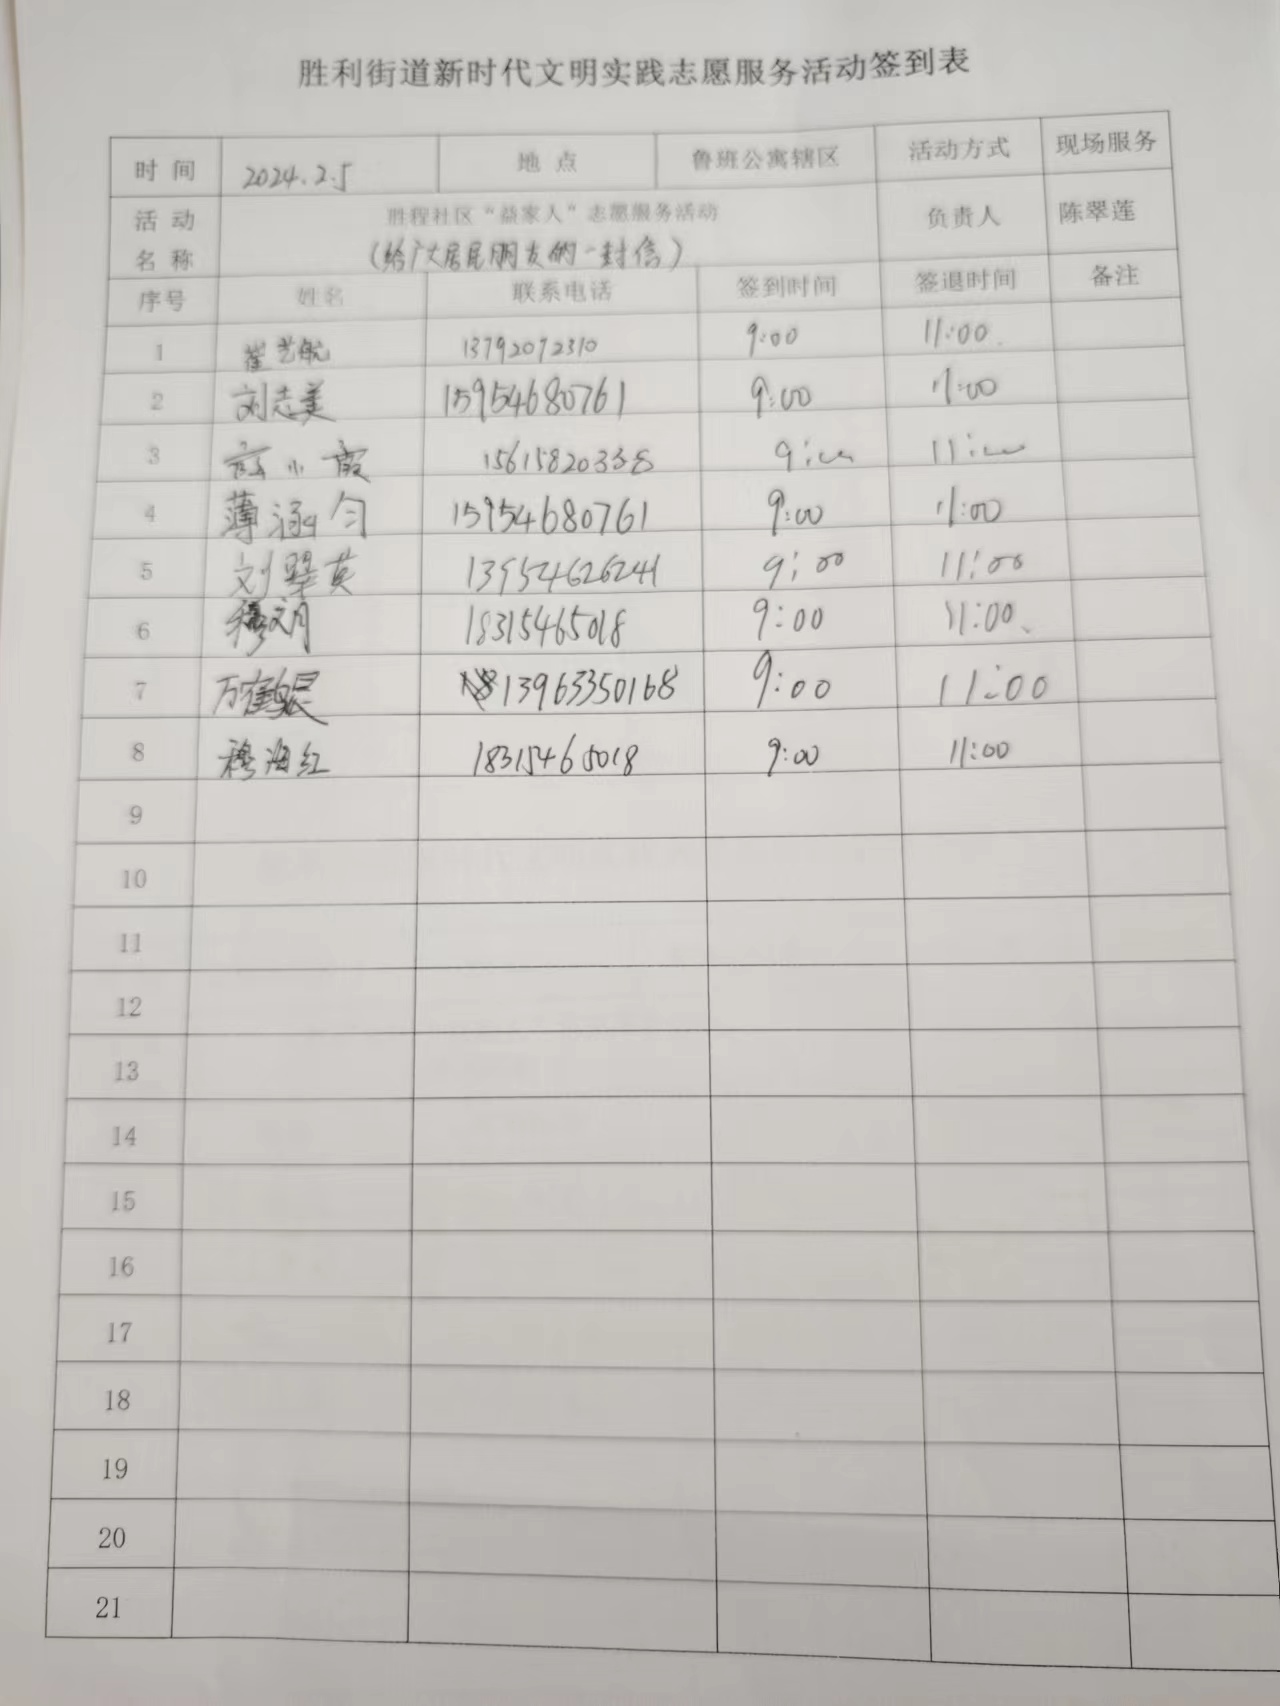 胜利街道新时代文明实践志愿服务活动签到表
时间 2024.2.5 地点 鲁班公寓辖区 活动方式 现场服务
活动名称 胜程社区“益家人”志愿服务活动 负责人 陈翠莲
(给广大居民朋友的一封信)
序号 姓名 联系电话 签到时间 签退时间 备注
1 崔艺航 13792072310 9:00 11:00
2 刘志美 15954680761 9:00 11:00
3 小霞 15615820338 9:00 11:00
4 薄涵匀 15954680761 9:00 11:00
5 刘翠英 13954626241 9:00 11:00
6 穆文月 18315465018 9:00 11:00
7 万 13963350168 9:00 11:00
8 穆海红 18315465018 9:00 11:00
9
10
11
12
13
14
15
16
17
18
19
20
21